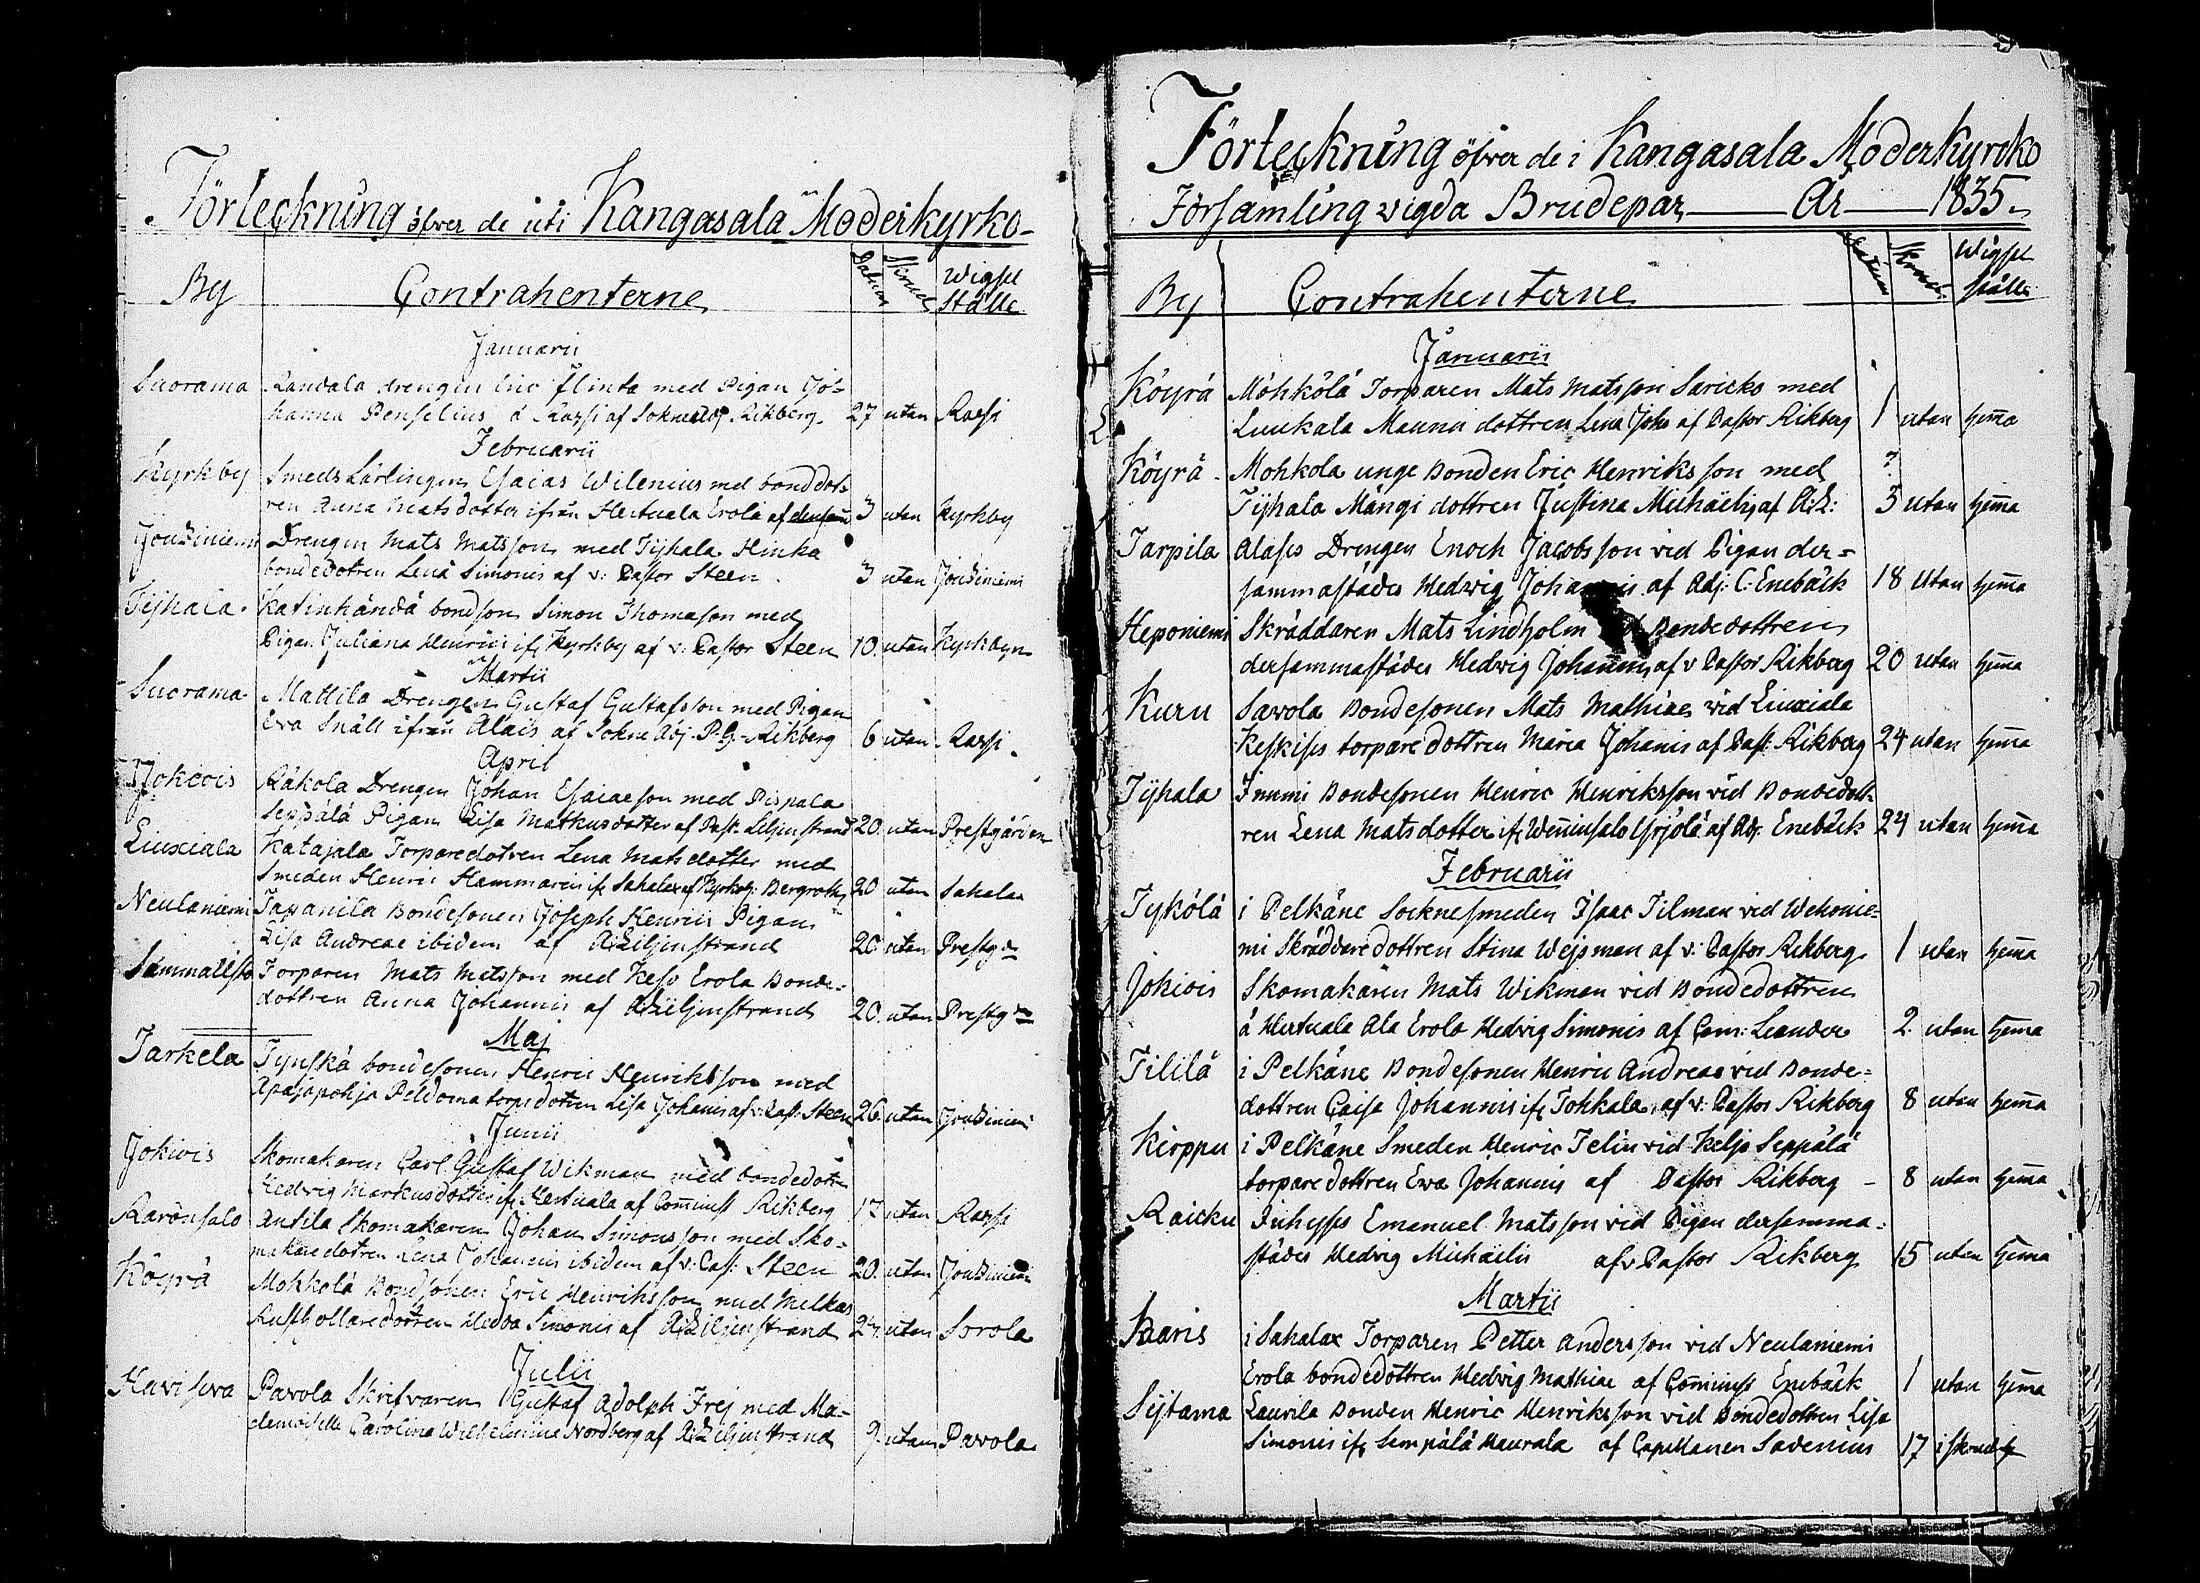 Förteckning öfver de uti Kangasala Moderkyrko-
By Contrahenterne Datum Skrud Wigsel Ställe
Januarii
Suorama Randala drengen Eric Flinta med Pigan Jo-
hanna Penselius å Rassi af Sokne Rikberg. 27 utan Rassi
Februarii
Kyrkby Smeds Lärlingen Esaias Wilenius med bonddot-
ren Anna Matsdotter ifrån Hertuala Erola af 3 utan Kyrkby
Jouziniemi Drengen Mats Matsson med Tijhala Hinka
bondedotren Lena Simonis af v: Pastor Steen. 3 utan Jouziniemi
Tijhala. Katinhändä bondson Simon Thomason med
Pigan Juliana Henrici ifr Kyrkby af v: Pastor Steen 10. utan Kyrkbyn
Martii
Suorama Mattila Drengen Gustaf Gustafsson med Pigan
Eva Snäll ifrån Alais af Sokne Adj. P. G. Rikberg 6 utan Rassi.
April
Jokiois Räkola Drengen Johan Esaiaeson med Pispala
Seppälä Pigan Lisa Matkusdotter af Past. Liljenstrand 20. utan Prestgården
Liuxiala Katajala Torparedotren Lena Matsdotter med
Smeden Henric Hammaren ifr Sahalax af Kyrkoh: Bergroth 20 utan Sahalax
Neulaniemi Tapanila Bondesonen Joseph Henrici Pigan
Lisa Andreae ibidem af A: Liljenstrand 20. utan Prestg:n
Sammalisto Torparen Mats Matsson med Keso Erola Bonde-
dottren Anna Johannis af A: Liljenstrand 20. utan Prestg:n
Maj
Tarkela Tynskä bondesonen Henric Henriksson med
Apajapohja Peldoma torpdotren Lisa Johanis af v: Past: Steen 26 utan Jouziniemi
Junii
Jokiois Skomakaren Carl Gustaf Wikman med bondedotren
Hedvig Markusdotter ifr Hertuala af Comminist Rikberg 17 utan Rassi
Raronsalo Antila Skomakaren Johan Simonsson med Sko-
makaredotren Lena Johannis ibidem af v: Past: Steen 20. utan Jouziniemi
Köyrä Mohkolä Bondsonen Eric Henriksson med Melkas
Rusthollaredotren Hedda Simonis af A: Liljenstrand 24. utan Sorola
Julii
Havisova Pavola Skrifvaren Gustaf Adolph Frej med Ma-
demoiselle Carolina Wilhelmina Nordberg af A: Liljenstrand 9 utan Pavola
Förteckning öfver de i Kangasala Moderkyrko
Församling vigda Brudepar År 1835.
By Contrahenterne Datum Skrud Wigsel ställe
Januarii
Köyrä Mohkölä Torparen Mats Matsson Saricko med
Luukala Mauna dottren Lena Johs af Pastor Rikberg 1 utan hema
Köyrä. Mohkola unge Bonden Eric Henriksson med ?
Tijhala Mångi dottren Justina Michaelis af A: L: 3 utan hema
Tarpila Alases Drengen Enoch Jacobsson vid Pigan der-
sammastädes Hedvig Johannis af Adj: C. Enebäck 18 utan hema
Heponiemi Skräddaren Mats Lindholm Bondedottren
dersammastädes Hedwig Johannis af v Pastor Rikberg 20 utan hema
Kuru Savola Bondesonen Mats Mathiae vid Liuxiala
Keskises torpare dottren Maria Johanis af Past: Rikberg 24 utan hema
Tijhala Inumi Bondesonen Henric Henriksson vid Bondedott-
ren Lena Matsdotter ifr Weninsalo Yrjölä af Adj. Enebäck 24 utan hema
Februarii
Tykölä i Pelkäne Socknesmeden Isaac Tilman vid Wehonie-
mi Skräddaredottren Stina Wejsman af v: Pastor Rikberg 1 utan hema
Jokiois Skomakaren Mats Wikman vid Bondedottren
å Hertuala Ala Erola Hedvig Simonis af Com: Leander 2 utan hema
Tililä i Pelkäne Bondesonen Henric Andreae vid Bonde-
dottren Caisa Johannis ifr Tohkala af v: Pastor Rikberg 8 utan hema
Kirppu i Pelkäne Smeden Henric Telin vid Keljo Seppälä
torpare dottren Eva Johannis af Pastor Rikberg - 8 utan hema
Raicku Inhyses Emanuel Matsson vid Pigan dersamma-
städes Hedvig Michaelis af v Pastor Rikberg 15 utan hema
Martii
Kaaris i Sahalax Torparen Petter Andersson vid Neulaniemi
Erola bondedottren Hedwig Mathiae af Comminist Enebäck 1 utan hema
Sijtama Laurila Bonden Henric Henriksson vid Bondedottren Lisa
Simonis ifr Lempälä Maurala af Capellanen Savenius 17 i skrud